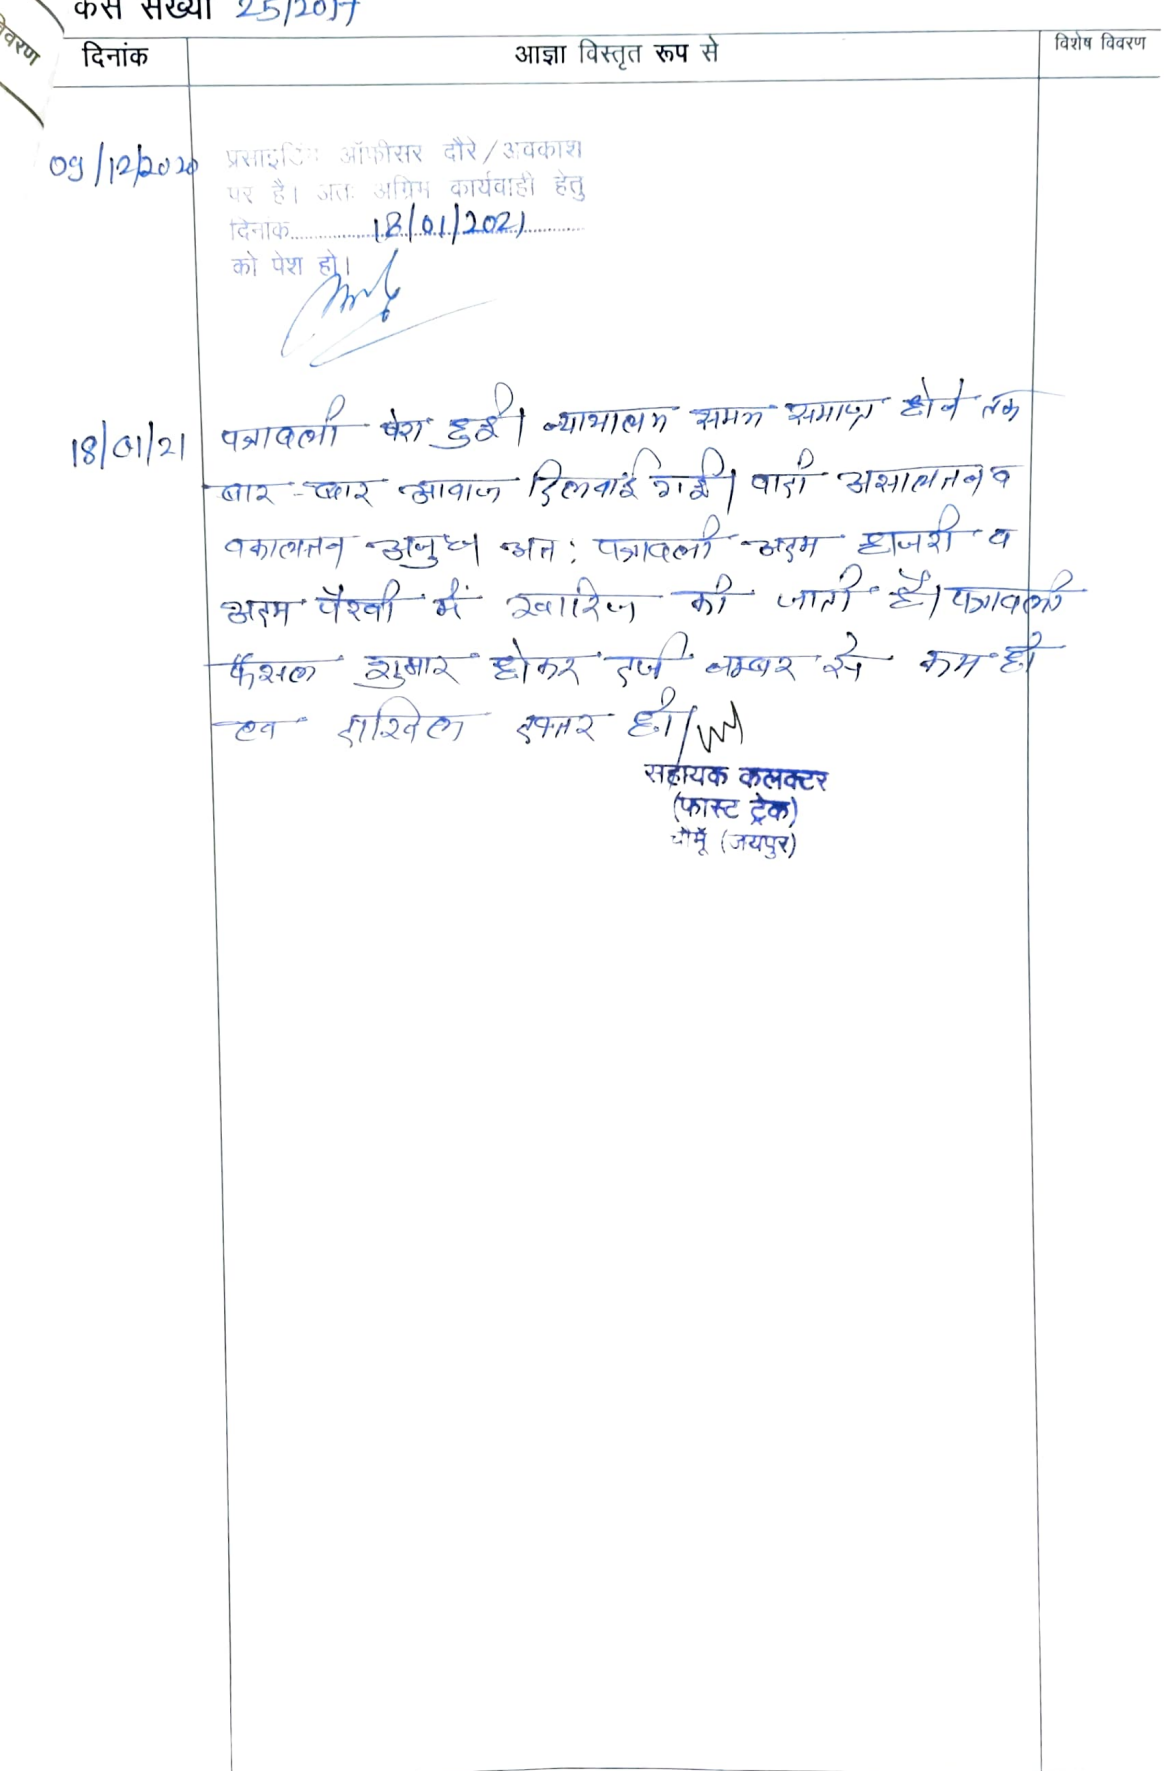 केस संख्या 25/2017
विवरण
दिनांक आज्ञा विस्तृत रूप से विशेष विवरण
09/12/2020 प्रसाइडिंग ऑफीसर दौरे/अवकाश
पर है। अतः अग्रिम कार्यवाही हेतु
दिनांक 18/01/2021
को पेश हो।
18/01/21 पत्रावली पेश हुई। न्यायालय समय समाप्त होने तक
बार-बार आवाज दिलवाई गई। वादी असालतन व
वकालतन अनु० अतः पत्रावली अदम हाजरी व
अदम पैरवी में खारिज की जाती है। पत्रावली
फैसल शुमार होकर दर्ज नम्बर से कम हो
दाखिल दफ्तर हो।
सहायक कलक्टर
(फास्ट ट्रेक)
चौमूँ (जयपुर)